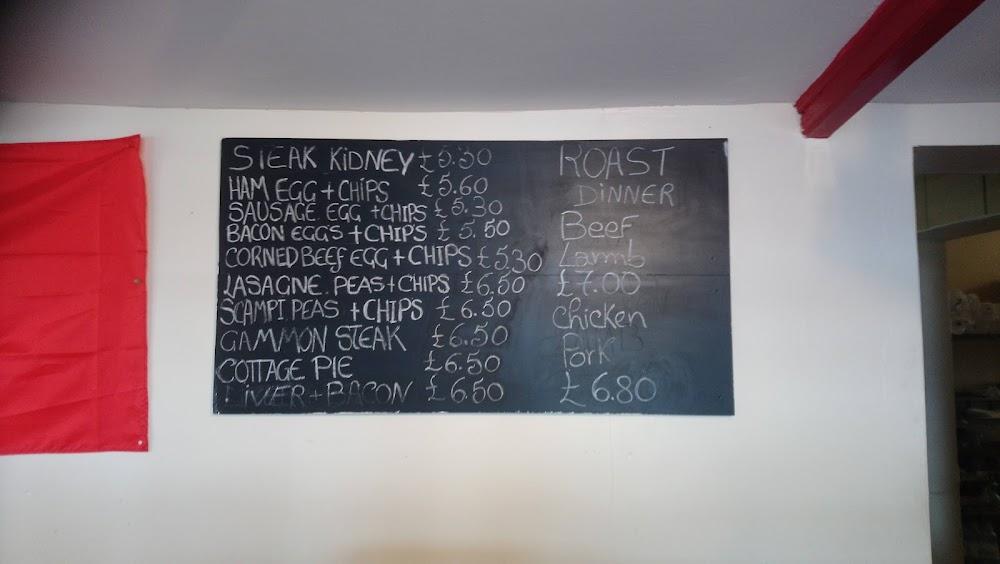 STEAK KiDNEY £5.30
HAM EGG + CHiPS £5.60
SAUSAGE EGG +CHIPS £5.30
BACON EGGS + CHIPS £5.50
CORNED BEEf EGG + CHIPS £5.30
LASAGNE. PEAS + CHIPS £6.50
SCAMPI PEAS + CHIPS £6.50
GAMMON STEAK £6.50
COTTAGE PIE £6.50
LiVER + BACON £6.50
ROAST
DINNER
Beef
Lamb
£7.00
Chicken
Pork
£6.80